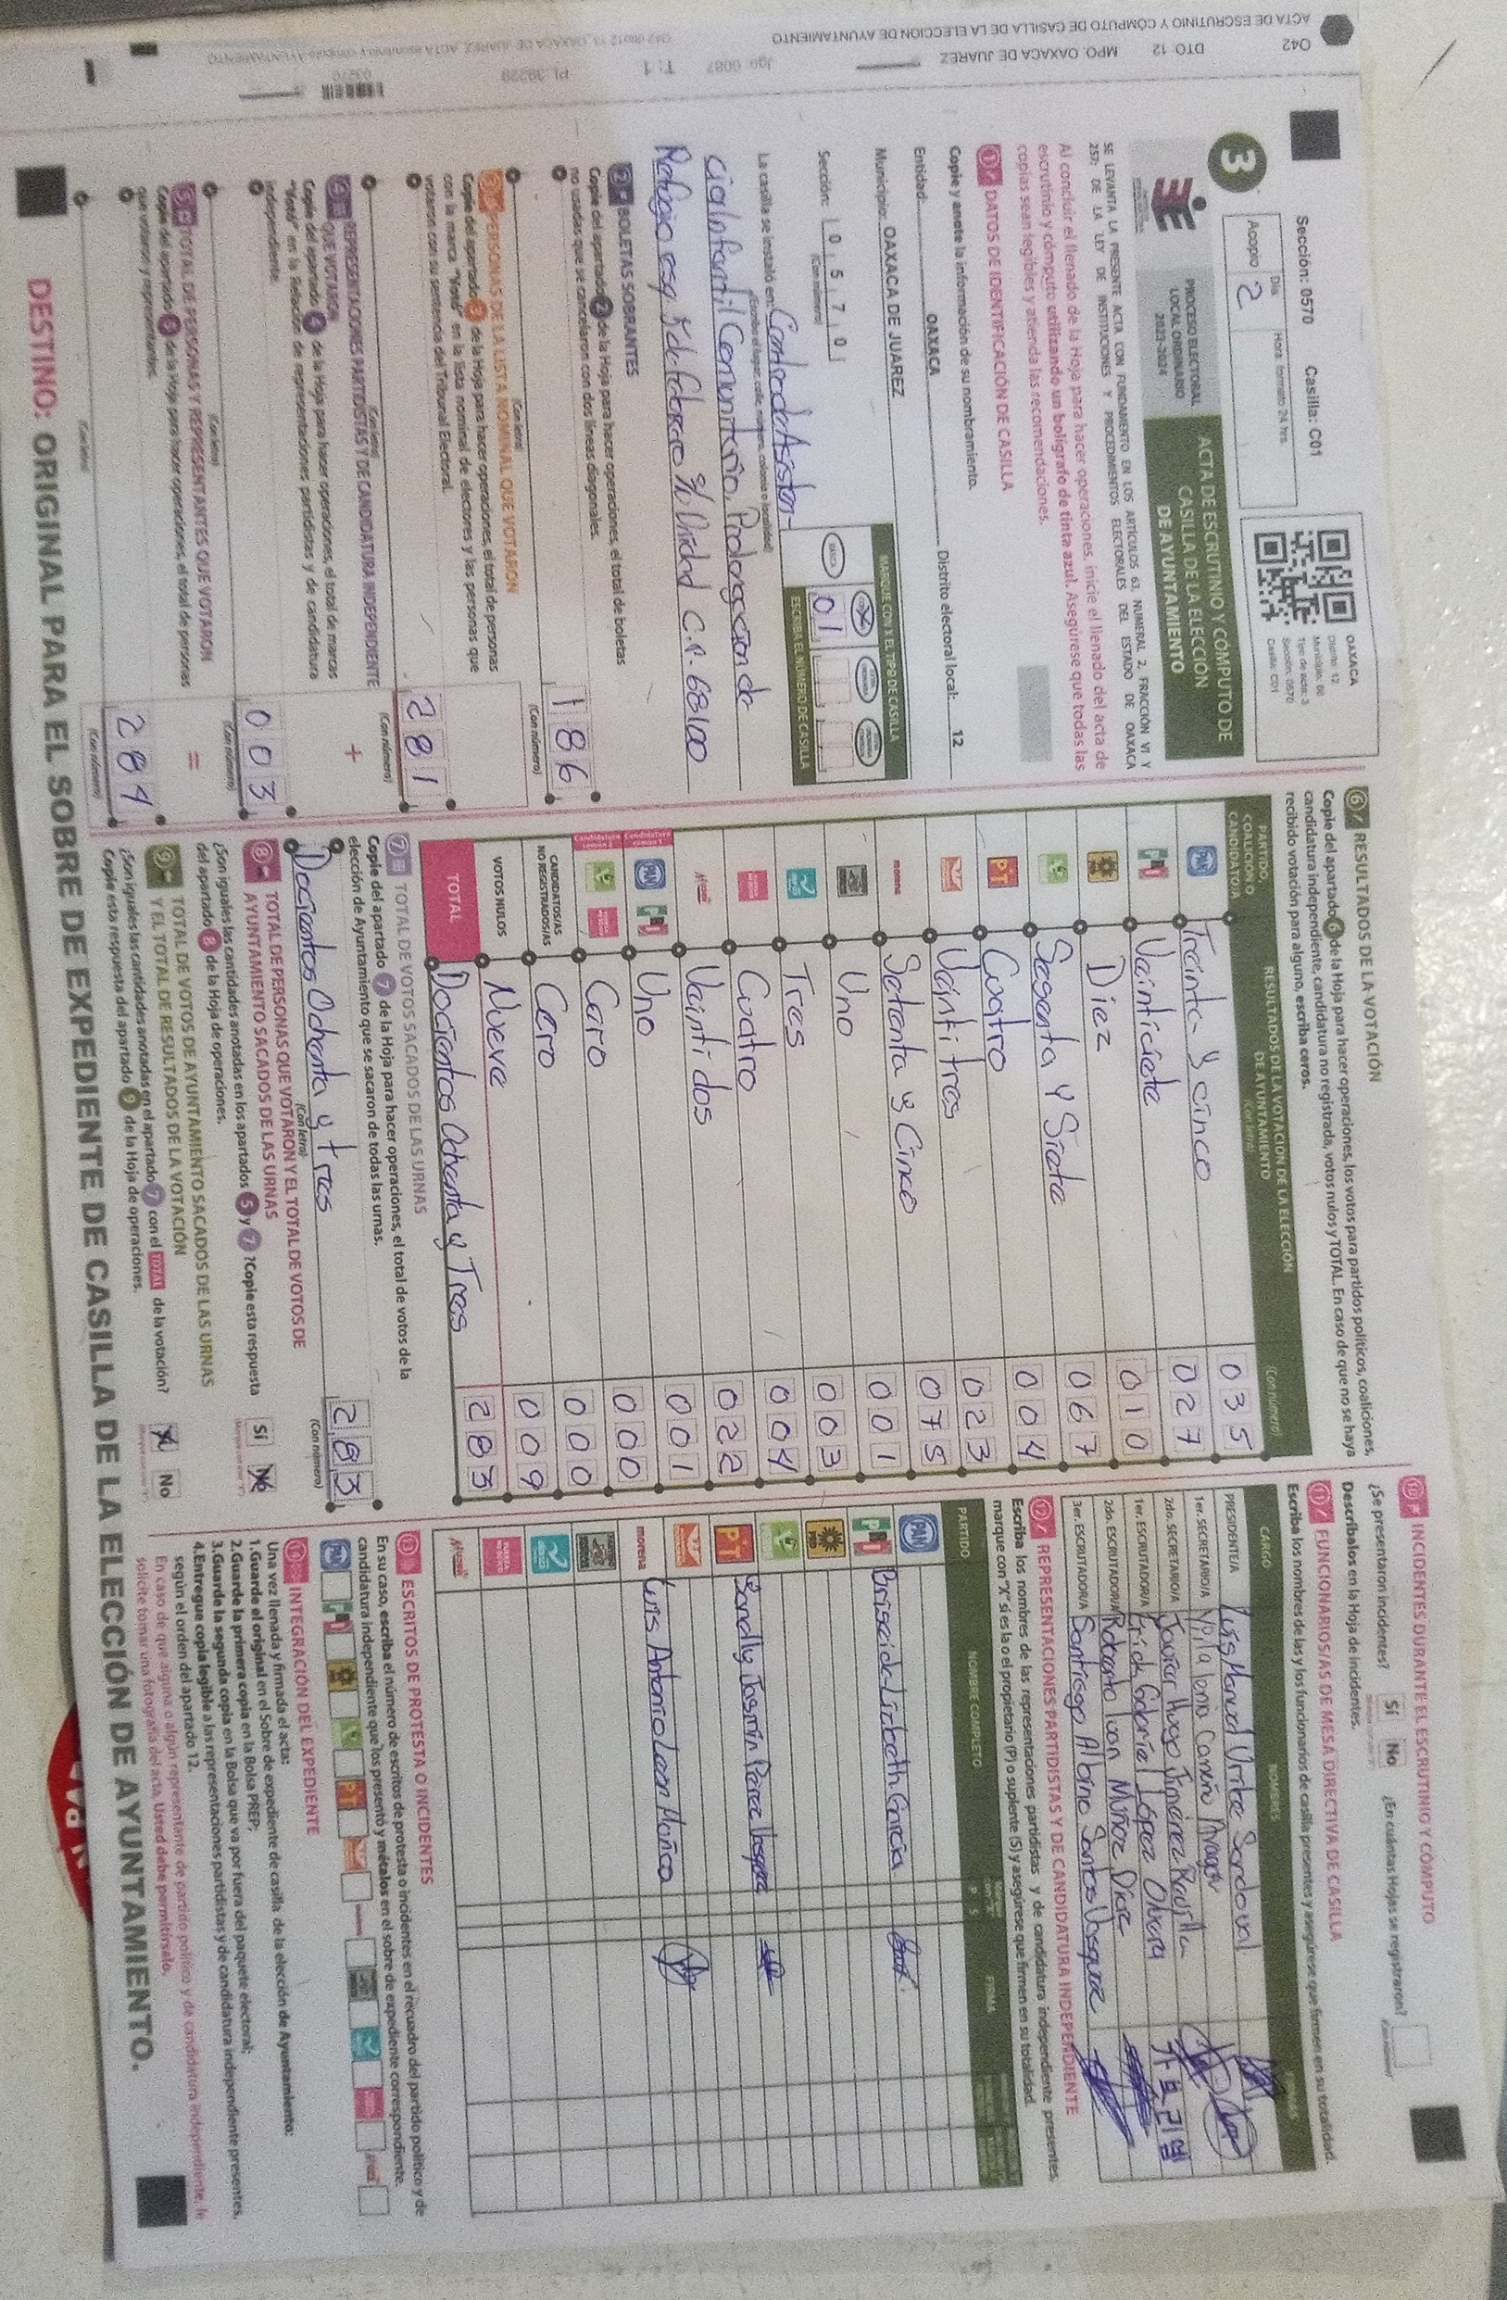 Sección: 0570 Casilla: C01
Día Hora: formato 24 hrs.
Acopio 2
3
OAXACA
Distrito: 12
Tipo de acta: 3
Sección: 0570
Casilla: C01
PROCESO ELECTORAL
LOCAL ORDINARIO
2023-2024
ACTA DE ESCRUTINIO Y CÓMPUTO DE
CASILLA DE LA ELECCIÓN
DE AYUNTAMIENTO
SE LEVANTA LA PRESENTE ACTA CON FUNDAMENTO EN LOS ARTÍCULOS 63, NUMERAL 2, FRACCIÓN VI Y
257; DE LA LEY DE INSTITUCIONES Y PROCEDIMIENTOS ELECTORALES DEL ESTADO DE OAXACA
Al concluir el llenado de la Hoja para hacer operaciones, inicie el llenado del acta de
escrutinio y cómputo utilizando un bolígrafo de tinta azul. Asegúrese que todas las
copias sean legibles y atienda las recomendaciones.
1 DATOS DE IDENTIFICACIÓN DE CASILLA
Copie y anote la información de su nombramiento.
Entidad: OAXACA Distrito electoral local: 12
Municipio: OAXACA DE JUAREZ
Sección: 0570
(Con número)
MARQUE CON X EL TIPO DE CASILLA
ESCRIBA EL NÚMERO DE CASILLA
01
La casilla se instaló en: Centro de Asisten-
(Escriba el lugar, calle, número, colonia o localidad)
cia Infantil Comunitario, Prolongacion de
C.P. 68100
2 BOLETAS SOBRANTES
Copie del apartado 2 de la Hoja para hacer operaciones, el total de boletas
no usadas que se cancelaron con dos líneas diagonales.
186
(Con letra) (Con número)
3 PERSONAS DE LA LISTA NOMINAL QUE VOTARON
Copie del apartado 3 de la Hoja para hacer operaciones, el total de personas
con la marca "Votó" en la lista nominal de electores y las personas que
votaron con su sentencia del Tribunal Electoral.
281
(Con letra) (Con número)
+
4 REPRESENTACIONES PARTIDISTAS Y DE CANDIDATURA INDEPENDIENTE
QUE VOTARON
Copie del apartado 4 de la Hoja para hacer operaciones, el total de marcas
"Votó" en la Relación de representaciones partidistas y de candidatura
independiente.
003
(Con letra) (Con número)
=
5 TOTAL DE PERSONAS Y REPRESENTANTES QUE VOTARON
Copie del apartado 5 de la Hoja para hacer operaciones, el total de personas
que votaron y representantes.
284
(Con letra) (Con número)
6 RESULTADOS DE LA VOTACIÓN
Copie del apartado 6 de la Hoja para hacer operaciones, los votos para partidos políticos, coaliciones,
candidatura independiente, candidatura no registrada, votos nulos y TOTAL. En caso de que no se haya
recibido votación para alguno, escriba ceros.
PARTIDO,
COALICIÓN O
CANDIDATO/A
RESULTADOS DE LA VOTACIÓN DE LA ELECCIÓN
DE AYUNTAMIENTO
(Con letra) (Con número)
PAN Treinta y cinco 035
PRI Veintisiete 027
Diez 010
Sesenta y Siete 067
PT Cuatro 004
Veintitres 023
morena Setenta y Cinco 075
Uno 001
Tres 003
Cuatro 004
Veintidos 022
PAN PRI Uno 001
Cero 000
CANDIDATOS/AS
NO REGISTRADOS/AS Cero 000
VOTOS NULOS Nueve 009
TOTAL Docientos Ochenta y Tres 283
7 TOTAL DE VOTOS SACADOS DE LAS URNAS
Copie del apartado 7 de la Hoja para hacer operaciones, el total de votos de la
elección de Ayuntamiento que se sacaron de todas las urnas.
Docientos Ochenta y tres 283
(Con letra) (Con número)
8 TOTAL DE PERSONAS QUE VOTARON Y EL TOTAL DE VOTOS DE
AYUNTAMIENTO SACADOS DE LAS URNAS
¿Son iguales las cantidades anotadas en los apartados 5 y 7? Copie esta respuesta
del apartado 8 de la Hoja de operaciones.
Sí No
9 TOTAL DE VOTOS DE AYUNTAMIENTO SACADOS DE LAS URNAS
Y EL TOTAL DE RESULTADOS DE LA VOTACIÓN
¿Son iguales las cantidades anotadas en el apartado 7 con el TOTAL de la votación?
Copie esta respuesta del apartado 9 de la Hoja de operaciones.
No
10 INCIDENTES DURANTE EL ESCRUTINIO Y CÓMPUTO
¿Se presentaron incidentes? Sí No ¿En cuántas Hojas se registraron?
Descríbalos en la Hoja de incidentes.
11 FUNCIONARIOS/AS DE MESA DIRECTIVA DE CASILLA
Escriba los nombres de las y los funcionarios de casilla presentes y asegúrese que firmen en su totalidad.
CARGO NOMBRES FIRMAS
PRESIDENTE/A Luis Manuel Uribe Sandoval
1er. SECRETARIO/A
2do. SECRETARIO/A Javier Hugo Jiménez
1er. ESCRUTADOR/A Erick Gabriel López Olvera
2do. ESCRUTADOR/A Roberto Ivan Muñoz Diaz
3er. ESCRUTADOR/A Santiago Albino Santos Vasquez
12 REPRESENTACIONES PARTIDISTAS Y DE CANDIDATURA INDEPENDIENTE
Escriba los nombres de las representaciones partidistas y de candidatura independiente presentes,
marque con "X" si es la o el propietario (P) o suplente (S) y asegúrese que firmen en su totalidad.
PARTIDO NOMBRE COMPLETO P S FIRMAS
PAN
PRI Briseida Lizbeth Garcia
PRD
PT Sandly Jasmin Perez Vasquez
morena Luis Antonio Leon Muñoz
13 ESCRITOS DE PROTESTA O INCIDENTES
En su caso, escriba el número de escritos de protesta o incidentes en el recuadro del partido político y de
candidatura independiente que los presentó y métalos en el sobre de expediente correspondiente.
14 INTEGRACIÓN DEL EXPEDIENTE
Una vez llenada y firmada el acta:
1.Guarde el original en el Sobre de expediente de casilla de la elección de Ayuntamiento:
2.Guarde la primera copia en la Bolsa PREP;
3.Guarde la segunda copia en la Bolsa que va por fuera del paquete electoral;
4.Entregue copia legible a las representaciones partidistas y de candidatura independiente presentes,
según el orden del apartado 12.
En caso de que alguna o algún representante de partido político y de candidatura independiente, le
solicite tomar una fotografía del acta, Usted debe permitírselo.
DESTINO: ORIGINAL PARA EL SOBRE DE EXPEDIENTE DE CASILLA DE LA ELECCIÓN DE AYUNTAMIENTO.
042 DTO. 12 MPO. OAXACA DE JUAREZ
ACTA DE ESCRUTINIO Y CÓMPUTO DE CASILLA DE LA ELECCION DE AYUNTAMIENTO